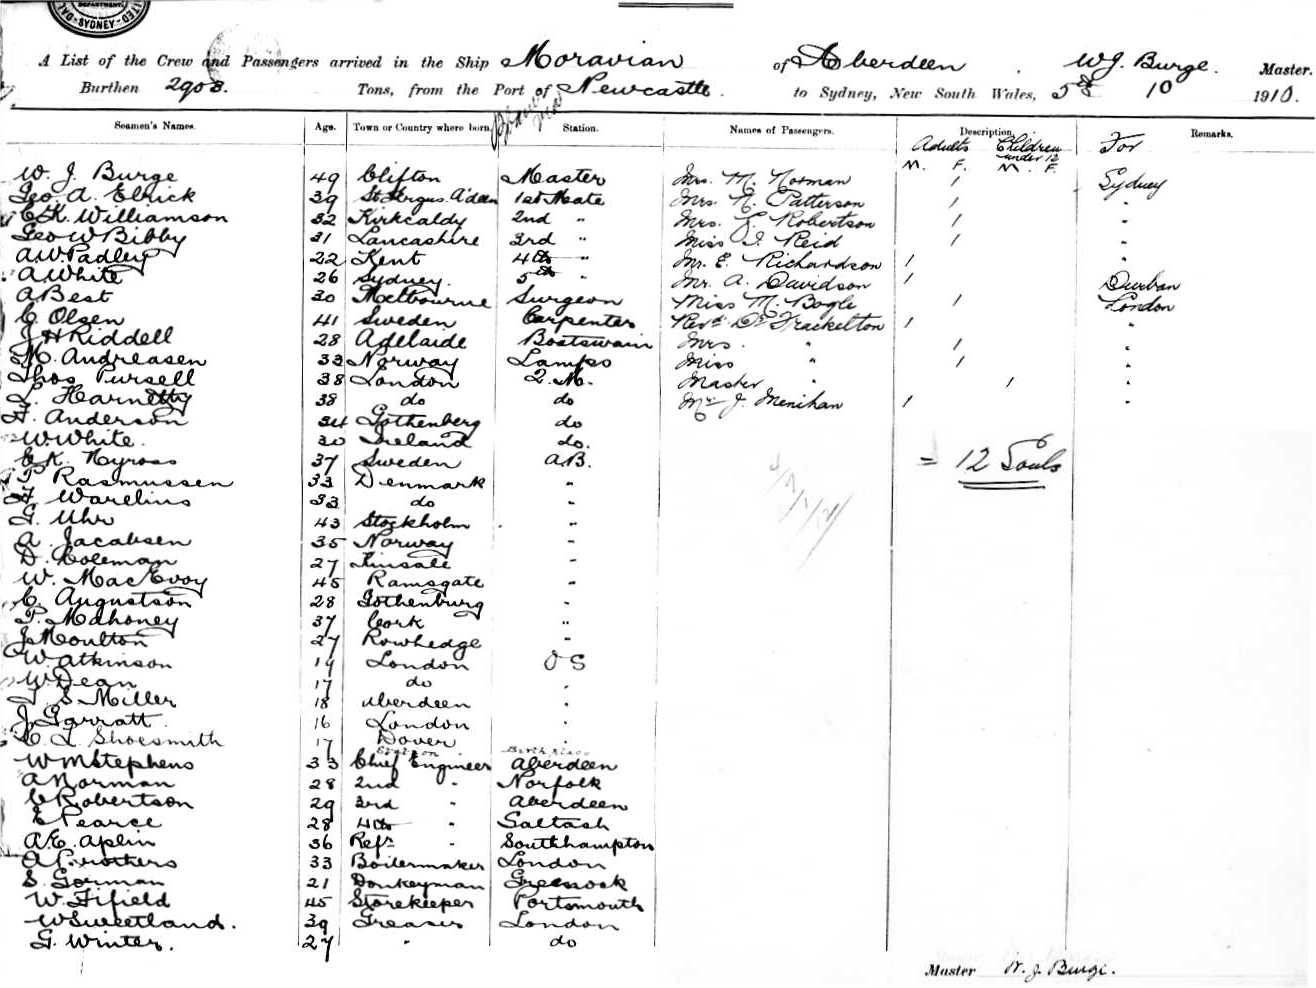 DEPARTMENT.
SYDNEY
A List of the Crew and Passengers arrived in the Ship Moravian of Aberdeen, W J. Burge. Master.
Burthen 2908. Tons, from the Port of Newcastle. to Sydney, New South Wales, 5th 10 1910.
Seamen's Names. Age. Town or Country where born. Station. Names of Passengers. Description Remarks.
Adults Children For
under 12
M. F. M. F.
W. J. Burge 49 Clifton Master Mrs. M. Norman 1 Sydney
Geo. A. Elrick 39 St Fergus. A'deen 1st Mate Mrs. N. Patterson 1 "
C K Williamson 32 Kirkcaldy 2nd " Mrs. J. Robertson 1 "
Geo W Bibby 31 Lancashire 3rd " Miss I. Reid 1 "
A W Padley 22 Kent 4th " Mr. E. Richardson 1 "
A White 26 Sydney. 5th " Mr. A. Davidson 1 Durban
A Best 30 Melbourne Surgeon Miss M. Bogle 1 London
C Olsen 41 Sweden Carpenter Revd Dr Frackelton 1 "
J H Riddell 28 Adelaide Boatswain Mrs. " 1 "
M. Andreasen 33 Norway Lamps Miss " 1 "
Thos Pursell 38 London Q. M. Master " 1 "
L. Harnetty 38 do do Mr J. Menihan 1 "
F. Anderson 34 Gothenberg do
W. White. 30 Ireland do.
= 12 Souls
K. Nyross 37 Sweden A.B.
P. Rasmussen 33 Denmark "
F. Warelius 33 do "
G. Uhr 43 Stockholm "
A. Jacobsen 35 Norway "
D. Coleman 27 Kinsale "
W. MacEvoy 45 Ramsgate "
C. Augustson 28 Gothenburg "
P. Mahoney 37 Cork "
J Moulton 27 Rowhedge "
W. Atkinson 19 London O S
W. Dean 17 do "
J. S. Miller 18 Aberdeen "
J. Garratt 16 London "
C. L. Shoesmith 17 Dover "
Station Birth place
W M Stephens 33 Chief Engineer Aberdeen
A Norman 28 2nd " Norfolk
C Robertson 29 3rd " Aberdeen
E Pearce 28 4th " Saltash
A. E. Aplin 36 Refr " Southhampton
A Brothers 33 Boilermaker London
S. Gorman 21 Donkeyman Greenock
W. Fifield 45 Storekeeper Portsmouth
W Sweetland. 39 Greaser London
G. Winter. 27 " do
Master W. J. Burge.